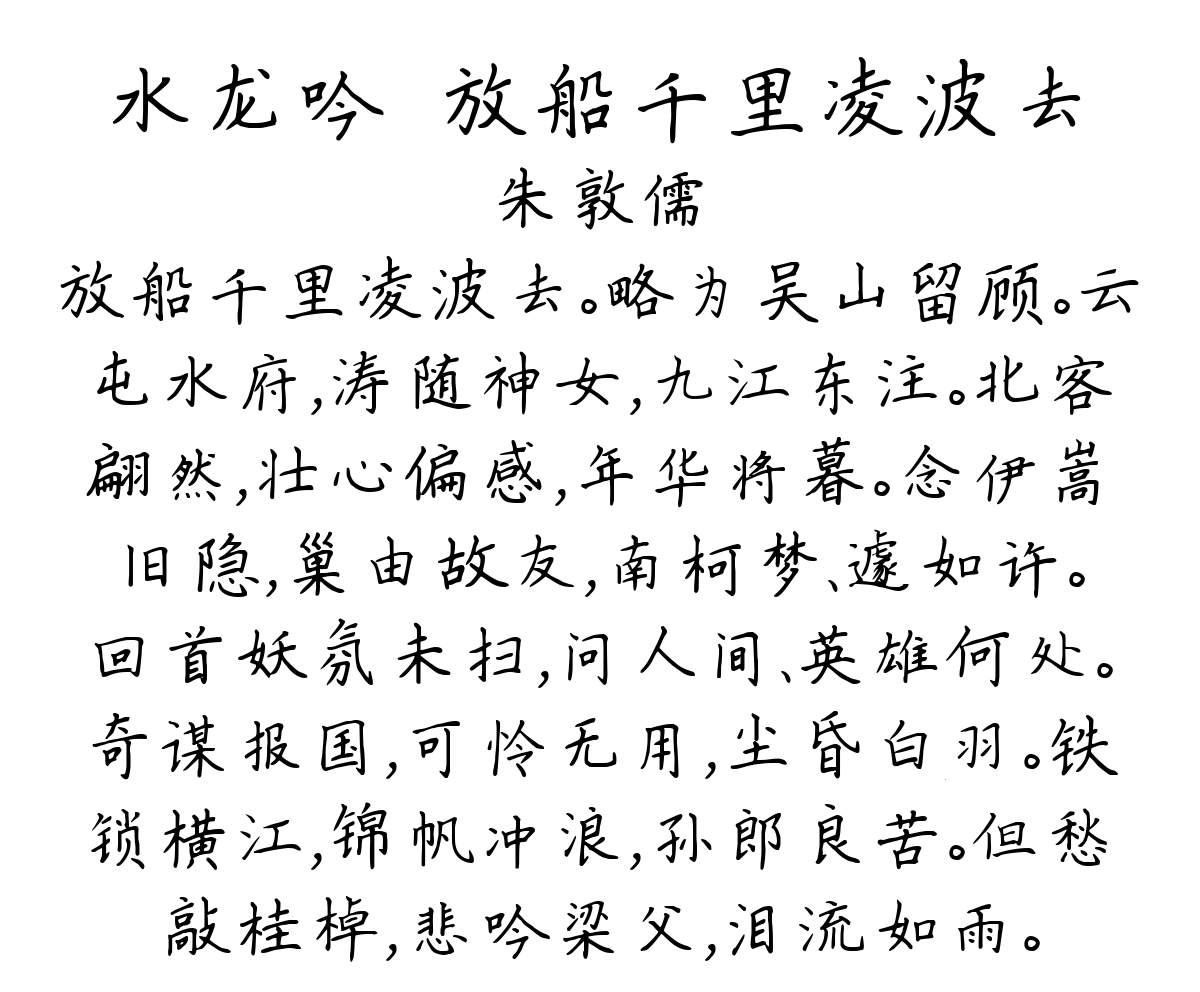 水龙吟 放船千里凌波去
朱敦儒
放船千里凌波去。略为吴山留顾。云
屯水府,涛随神女,九江东注。北客
翩然,壮心偏感,年华将暮。念伊嵩
旧隐,巢由故友,南柯梦、遽如许。
回首妖氛未扫,问人间、英雄何处。
奇谋报国,可怜无用,尘昏白羽。铁
锁横江,锦帆冲浪,孙郎良苦。但愁
敲桂棹,悲吟梁父,泪流如雨。